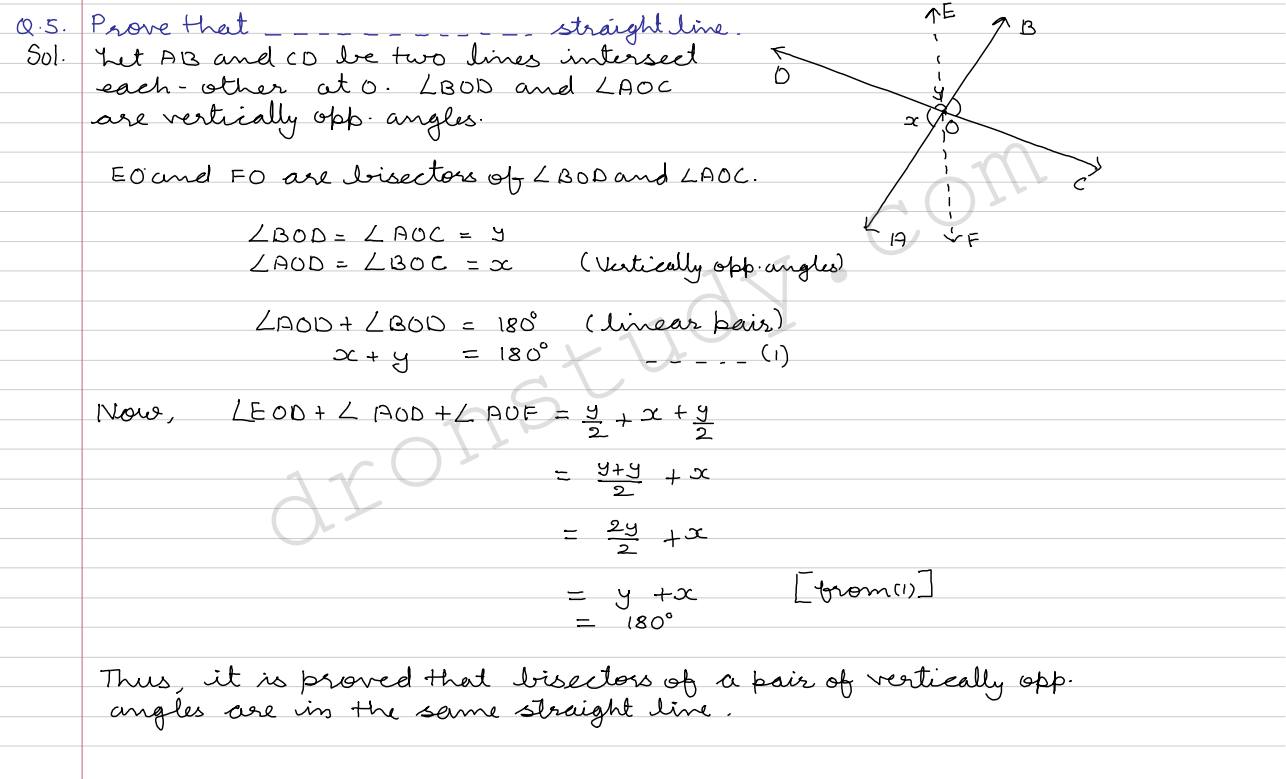 Q.5. Prove that _ _ _ _ _ _ _ _ _ _ _ _ _. straight line.
Sol. Let AB and CD be two lines intersect
each-other at O. ∠BOD and ∠AOC
are vertically opp. angles.
EO and FO are bisectors of ∠BOD and ∠AOC.
∠BOD = ∠AOC = y
∠AOD = ∠BOC = x (Vertically opp. angles)
∠AOD + ∠BOD = 180° (linear pair)
x + y = 180° _ _ _ _ _ (1)
Now, ∠EOD + ∠AOD + ∠AOF = y/2 + x + y/2
= y+y/2 + x
= 2y/2 + x
= y + x [from (1)]
= 180°
Thus, it is proved that bisectors of a pair of vertically opp.
angles are in the same straight line.
E
B
D
y
x
O
C
A
F
dronstudy.com